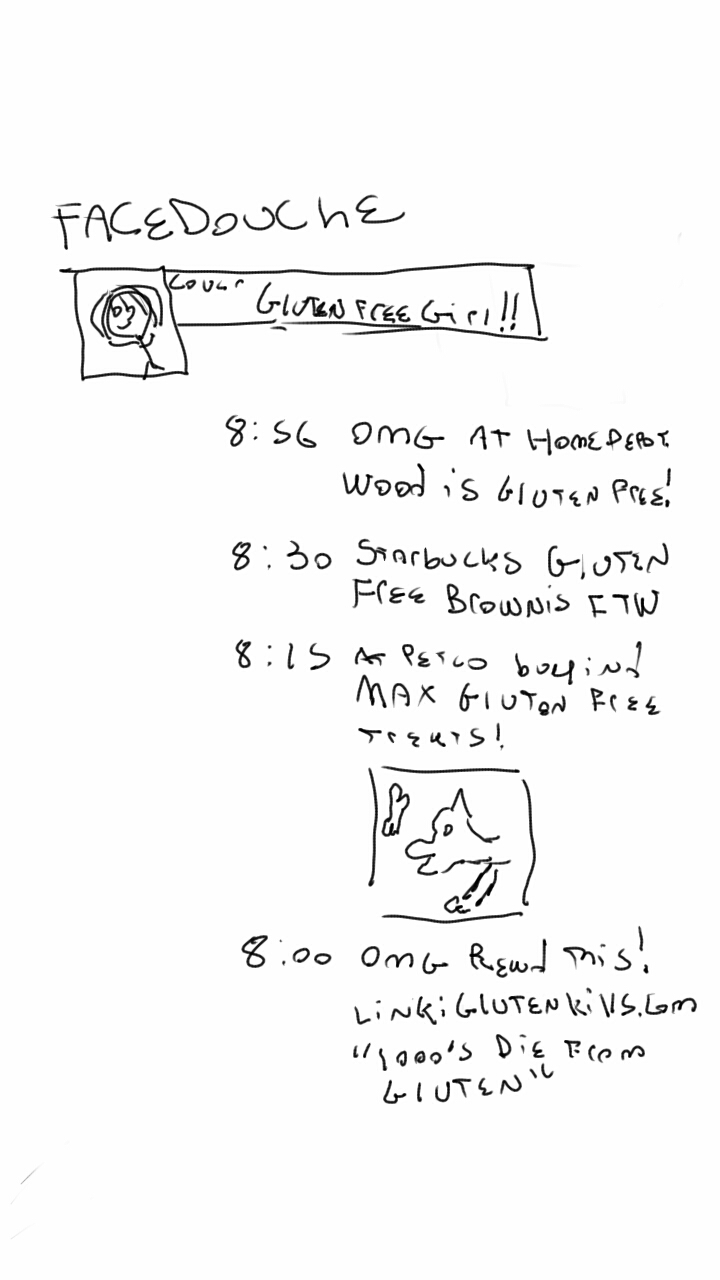 FACEDOUCHE
COVER
GLUTEN FREE Girl!!
8:56 OMG AT HOMEDEPOT
WOOD iS GLUTEN FREE!
8:30 STARBUCKS GLUTEN
FREE BROWNIS FTW
8:15 AT PETCO buying
MAX GLUTEN FREE
TREATS!
8:00 OMG READ THIS!
LINK:GLUTENKILLS.COM
"1000'S DIE FROM
GLUTEN"